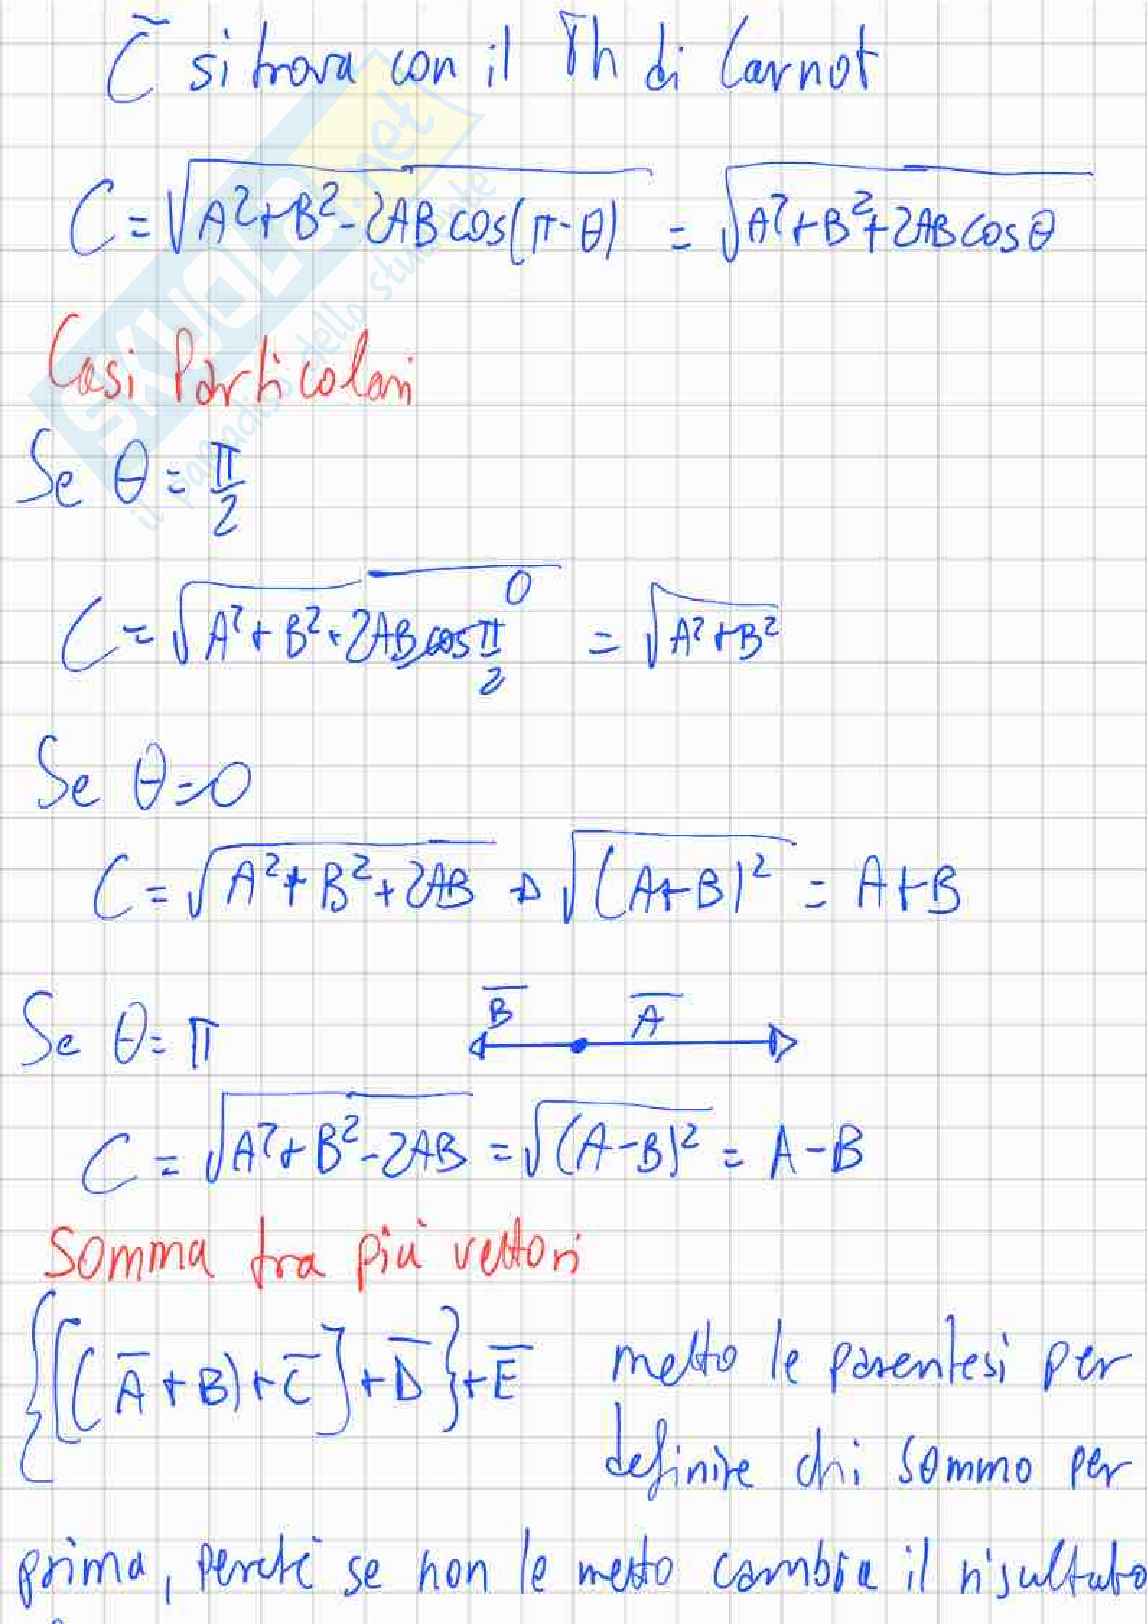 C̄ si trova con il Th di Carnot
C = √(A²+B²-2AB cos(π-θ)) = √(A²+B²+2AB cos θ)
Casi Particolari
Se θ = π/2
C = √(A²+B²+2AB cos π/2) 0 = √(A²+B²)
Se θ = 0
C = √(A²+B²+2AB) → √((A+B)²) = A+B
Se θ = π B̄ Ā
C = √(A²+B²-2AB) = √((A-B)²) = A-B
Somma tra più vettori
{[(Ā+B)+C̄]+D̄}+Ē metto le parentesi per
definire chi sommo per
prima, perché se non le metto cambia il risultato
SKUOLA.net
il paradiso dello studente